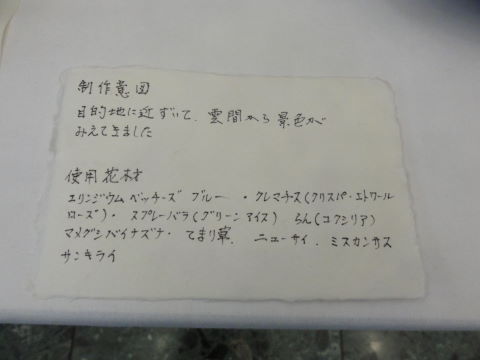 制作意図
目的地に近ずいて、雲間から景色が
みえてきました
使用花材
エリンジウム ベッチーズ ブルー ・クレマチス(クリスパ・エトワール
ローズ)・ スプレーバラ(グリーン アイス) らん(コクシリア)
マメグンバイナズナ・ てまり草. ニューサイ. ミスカンサス
サンキライ